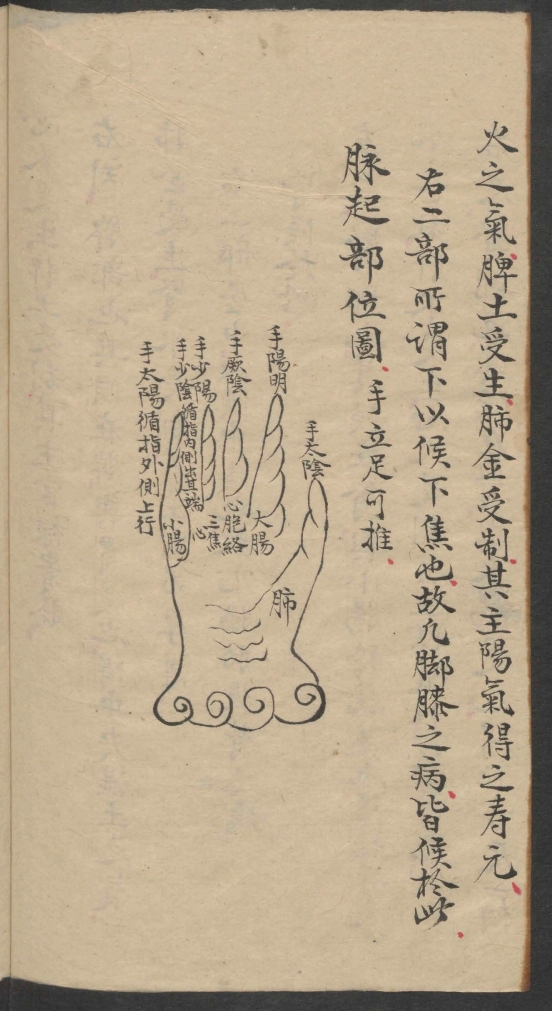 火之氣脾土受生肺金受制其主陽氣得之寿元
右二部所謂下以候下焦也故凡脚膝之病皆候於此
脉起部位圖 手立足可推
手太陰
手陽明
手厥陰
手少陽
手少陰循指內側出其端
手太陽循指外側上行
肺
大腸
心胞絡
三焦
心
小腸